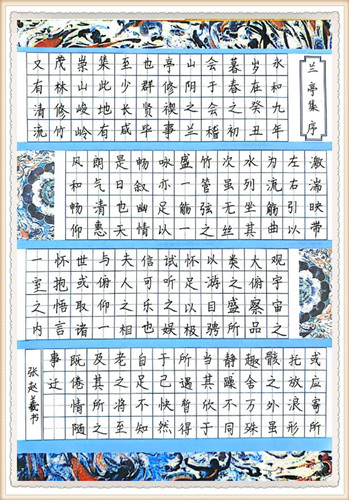 兰亭集序
永和九年
岁在癸丑
暮春之初
会于会稽
山阴之兰
亭修禊事
也群贤毕
至少长咸
集此地有
崇山峻岭
茂林修竹
又有清流
激湍映带
左右引以
为流觞曲
水列坐其
次虽无丝
竹管弦之
盛一觞一
咏亦足以
畅叙幽情
是日也天
朗气清惠
风和畅仰
观宇宙之
大俯察品
类之盛所
以游目骋
怀足以极
视听之娱
信可乐也
夫人之相
与俯仰一
世或取诸
怀抱悟言
一室之内
或应寄所
托放浪形
骸之外虽
趣舍万殊
静躁不同
当其欣于
所遇暂得
于己快然
自足不知
老之将至
及其所之
既倦情随
事迁
张赵羲书